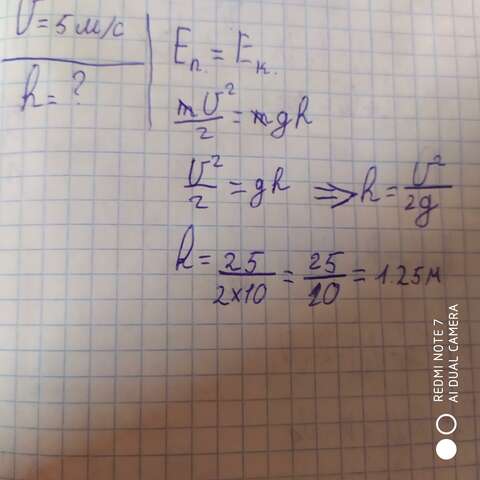 V = 5 м/с
h = ?
Eп. = Eк.
mV²/2 = mgh
V²/2 = gh ⇒ h = V²/2g
h = 25/2×10 = 25/20 = 1.25м
REDMI NOTE 7
AI DUAL CAMERA